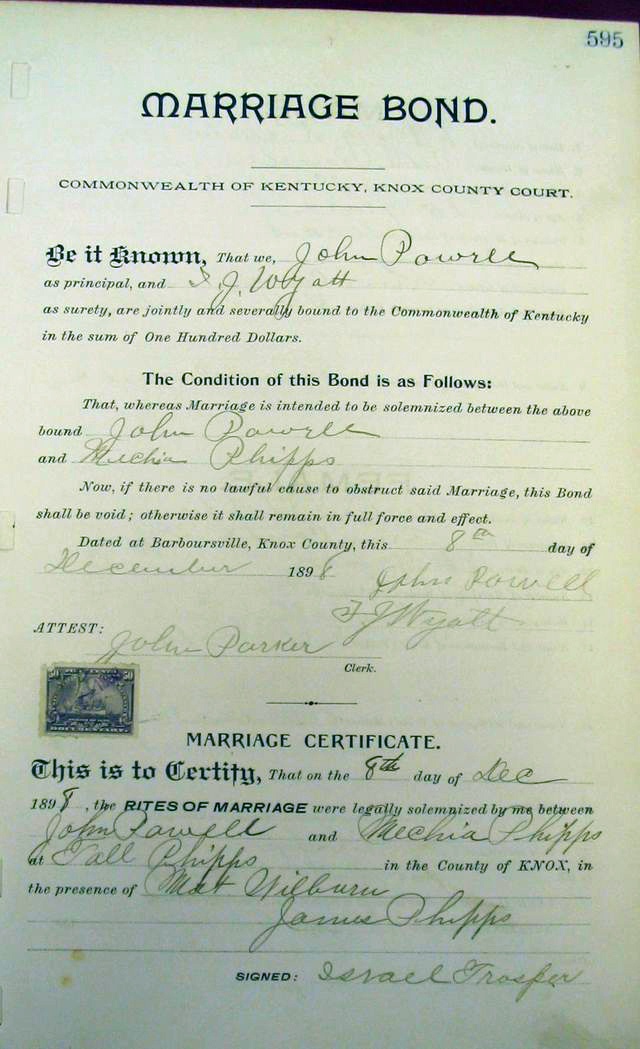 595
MARRIAGE BOND.
COMMONWEALTH OF KENTUCKY, KNOX COUNTY COURT.
Be it Known, That we, John Powell
as principal, and F. J. Wyatt
as surety, are jointly and severally bound to the Commonwealth of Kentucky
in the sum of One Hundred Dollars.
The Condition of this Bond is as Follows:
That, whereas Marriage is intended to be solemnized between the above
bound John Powell
and Mechia Phipps
Now, if there is no lawful cause to obstruct said Marriage, this Bond
shall be void; otherwise it shall remain in full force and effect.
Dated at Barboursville, Knox County, this 8th day of
December 1898 John Powell
F J Wyatt
ATTEST:
John Parker
Clerk.
50 50
DOCUMENTARY
MARRIAGE CERTIFICATE.
This is to Certify, That on the 8th day of Dec
1898, the RITES OF MARRIAGE were legally solemnized by me between
John Powell and Mechia Phipps
at Tall Phipps in the County of KNOX, in
the presence of Mat Wilburn
James Phipps
SIGNED: Israel Trosper